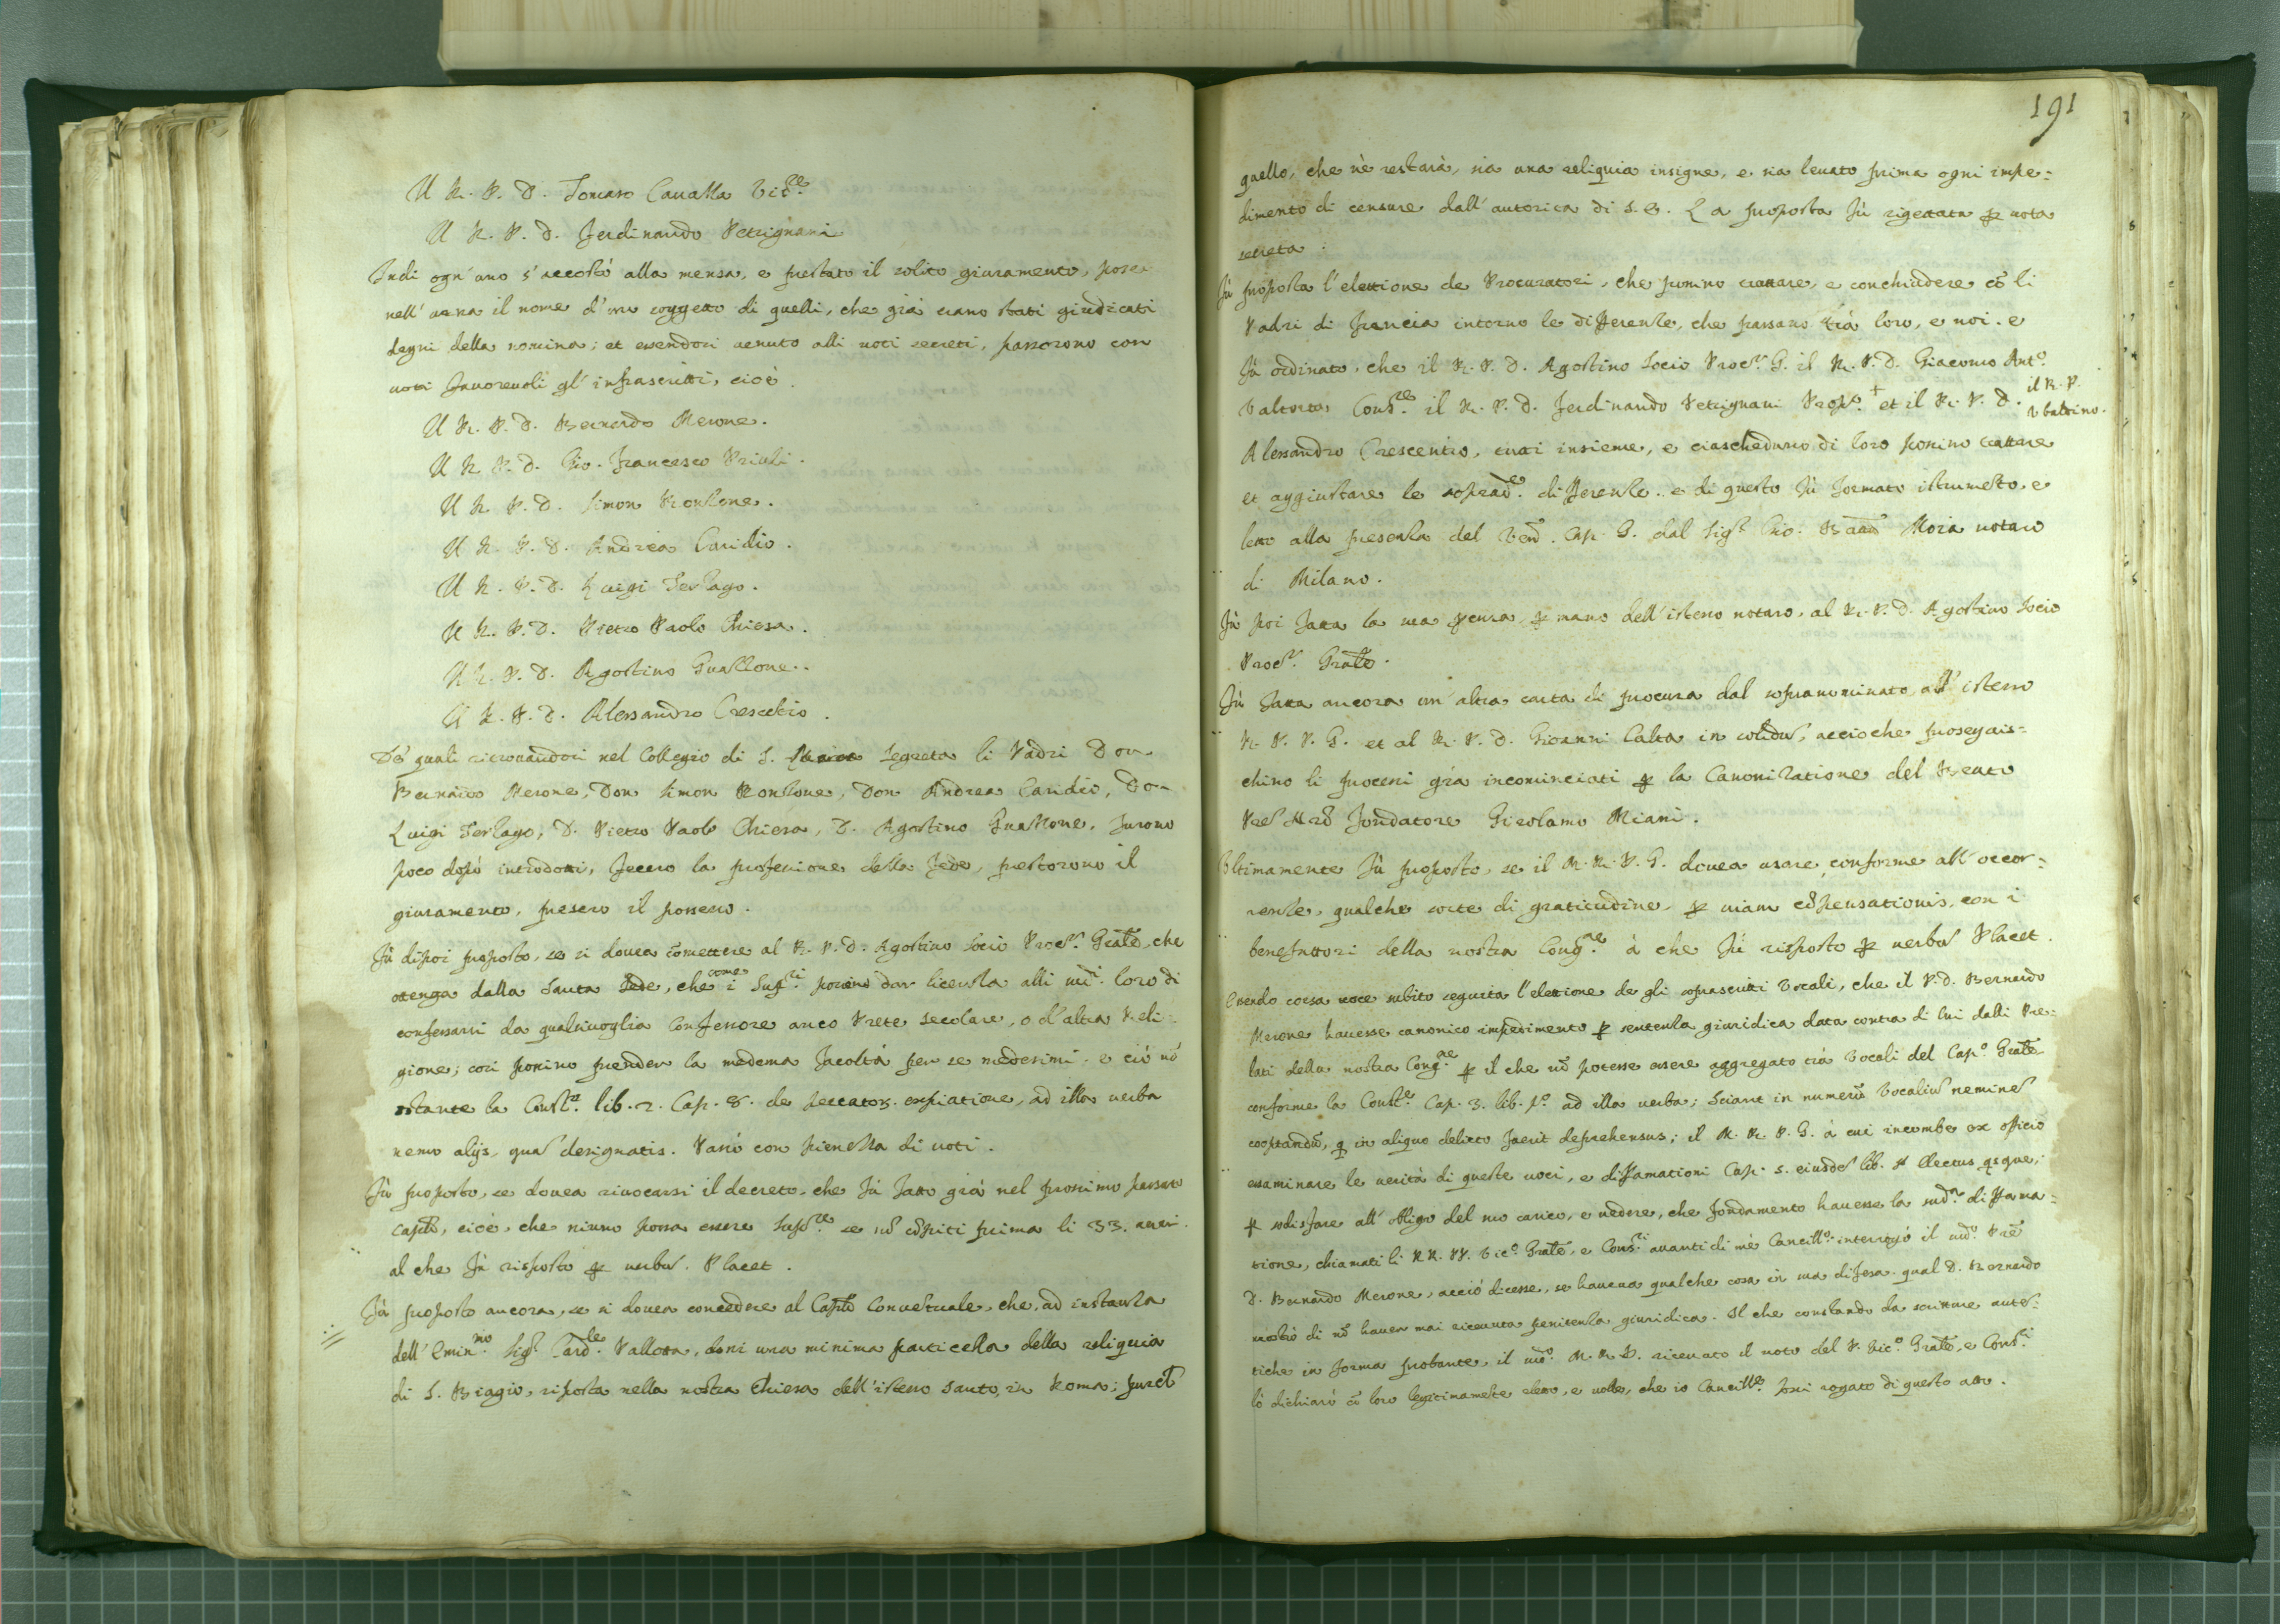 Il R. P. D. Tomaso Cavalla Vic.re
Il R. P. D. Ferdinando Petrignani
Indi ogn'uno s'accostò alla mensa, e prestato il solito giuramento, pose
nell'urna il nome d'un soggetto di quelli, che già erano stati giudicati
degni della nomina; et essendosi venuto alli voti secreti, passorono con
voti favorevoli gl'infrascritti, cioè.
Il R. P. D. Bernardo Merone.
Il R. P. D. Gio. Francesco Priuli.
Il R. P. D. Simon Ronzone.
Il R. P. D. Andrea Caridio.
Il R. P. D. Luigi Terzago.
Il R. P. D. Pietro Paolo Chiesa.
Il R. P. D. Agostino Guazzone.
Il R. P. D. Alessandro Crescētio.
De' quali ritrovandosi nel Collegio di S. Maria Segreta li Padri Don
Bernardo Merone, Don Simon Ronzone, Don Andrea Caridio, Don
Luigi Terzago, D. Pietro Paolo Chiesa, D. Agostino Guazzone, furono
poco dopò introdotti, fecero la professione della fede, prestorono il
giuramento, presero il possesso.
Fù dipoi proposto, se si dovea cōmettere al R. P. D. Agostino Socio Proc.r Grãle, che
ottenga dalla Santa Sede, che come i Sup.ri possino dar licenza alli sud.i loro di
confessarsi da qualsivoglia Confessore anco Prete secolare, o d'altra Reli=
gione; cosi possino prender la medema facoltà per se medesimi. e ciò nō
ostante la Const.e lib. 2. Cap. 8. de peccator. expiatione, ad illa verba
nemo alijs, quā designatis. Passò con pienezza di voti.
Fù proposto, se dovea rivocarsi il decreto, che fù fatto già nel prossimo passato
Capitō, cioè, che niuno possa essere Sup.re se nō cōpiti prima li 33. anni.
al che fù risposto per verbū. Placet.
Fù proposto ancora, se si dovea concedere al Capitō Conventuale, che, ad instanza
dell'Emin.mo Sig.r Card.le Pallotta, doni una minima particella della reliquia
di S. Biagio, riposta nella nostra Chiesa dell'istesso Santo, in Roma; purchē
191
quello, che nè restarà, sia una reliquia insigne, e sia levato prima ogni impe=
dimento di censure dall'autorità di S. S. La proposta fù rigettata per vota
secreta.
Fù proposta l'elettione de Procuratori, che possino trattare, e conchiudere cō li
Padri di Francia intorno le differenze, che passano trà loro, e noi. e
fù ordinato, che il R. P. D. Agostino Socio Proc.r G. il R. P. D. Giacomo Ant.o
Valtorta Cons.re il R. P. D. Ferdinando Petrignani Prop.o + et il R. P. D.
il R. P.
Ubaldino.
Alessandro Crescentio, tutti insieme, e ciascheduno di loro possino trattare
et aggiustare le soprad.e differenze. e di questo fù formato istrumēto, e
letto alla presenza del Ven. Cap. G. dal Sig.r Gio. Moia notaro
di Milano.
Fù poi fatta la sua procura per mano dell'istesso notaro, al R. P. D. Agostino Socio
Proc.r Grãle.
Fù fatta ancora un'altra carta di procura dal sopranominato, all'istesso
R. P. P. G. et al R. P. D. Giovanni Calta in solidū, accioche proseguis=
chino li processi già incominciati per la Canonizatione del Beato
Pre Nrō Fondatore Girolamo Miani.
Ultimamente fù proposto, se il M. R. P. G. dovea usare, conforme all'occor=
renze, qualche sorte di gratitudine, per viam cōpensationis, con i
benefattori della nostra Cong.ne à che fù risposto per verbū Placet.
Essendo corsa voce subito seguita l'elettione de gli soprascritti Vocali, che il P. D. Bernardo
Merone havesse canonico impedimento per sentenza giuridica data contra di lui dalli Pre=
lati della nostra Cong.ne per il che nō potesse essere aggregato trà Vocali del Cap.o Grãle
conforme la Const.e Cap. 3. lib. p.o ad illa verba; Sciant in numerū Vocaliū neminē
cooptandū, qi in aliquo delicto fuerit deprehensus; il M. R. P. G. à cui incombe ex officio
essaminare le verità di queste voci, e diffamationi Cap. 5. eiusdē lib. Electus qsque;
per sodisfare all'obligo del suo carico, e vedere, che fondamento havesse la sud.a diffama=
tione, chiamati li RR. PP. Vic.o Grãle, e Cons.ri avanti di mè Cancill.o interrogò il sud.o Prē
D. Bernardo Merone, acciò dicesse, se haveva qualche cosa in sua difesa. qual D. Bernardo
mostrò di nō haver mai ricevuta penitenza giuridica. Il che constando da scritture auten=
tiche in forma probante, il sud.o M. R. P. ricevuto il voto del P. Vic.o Grãle, e Cons.ri
lo dichiarò cō loro legitimamēte eletto, e volle, che io Cancill.o fossi rogato di questo atto.